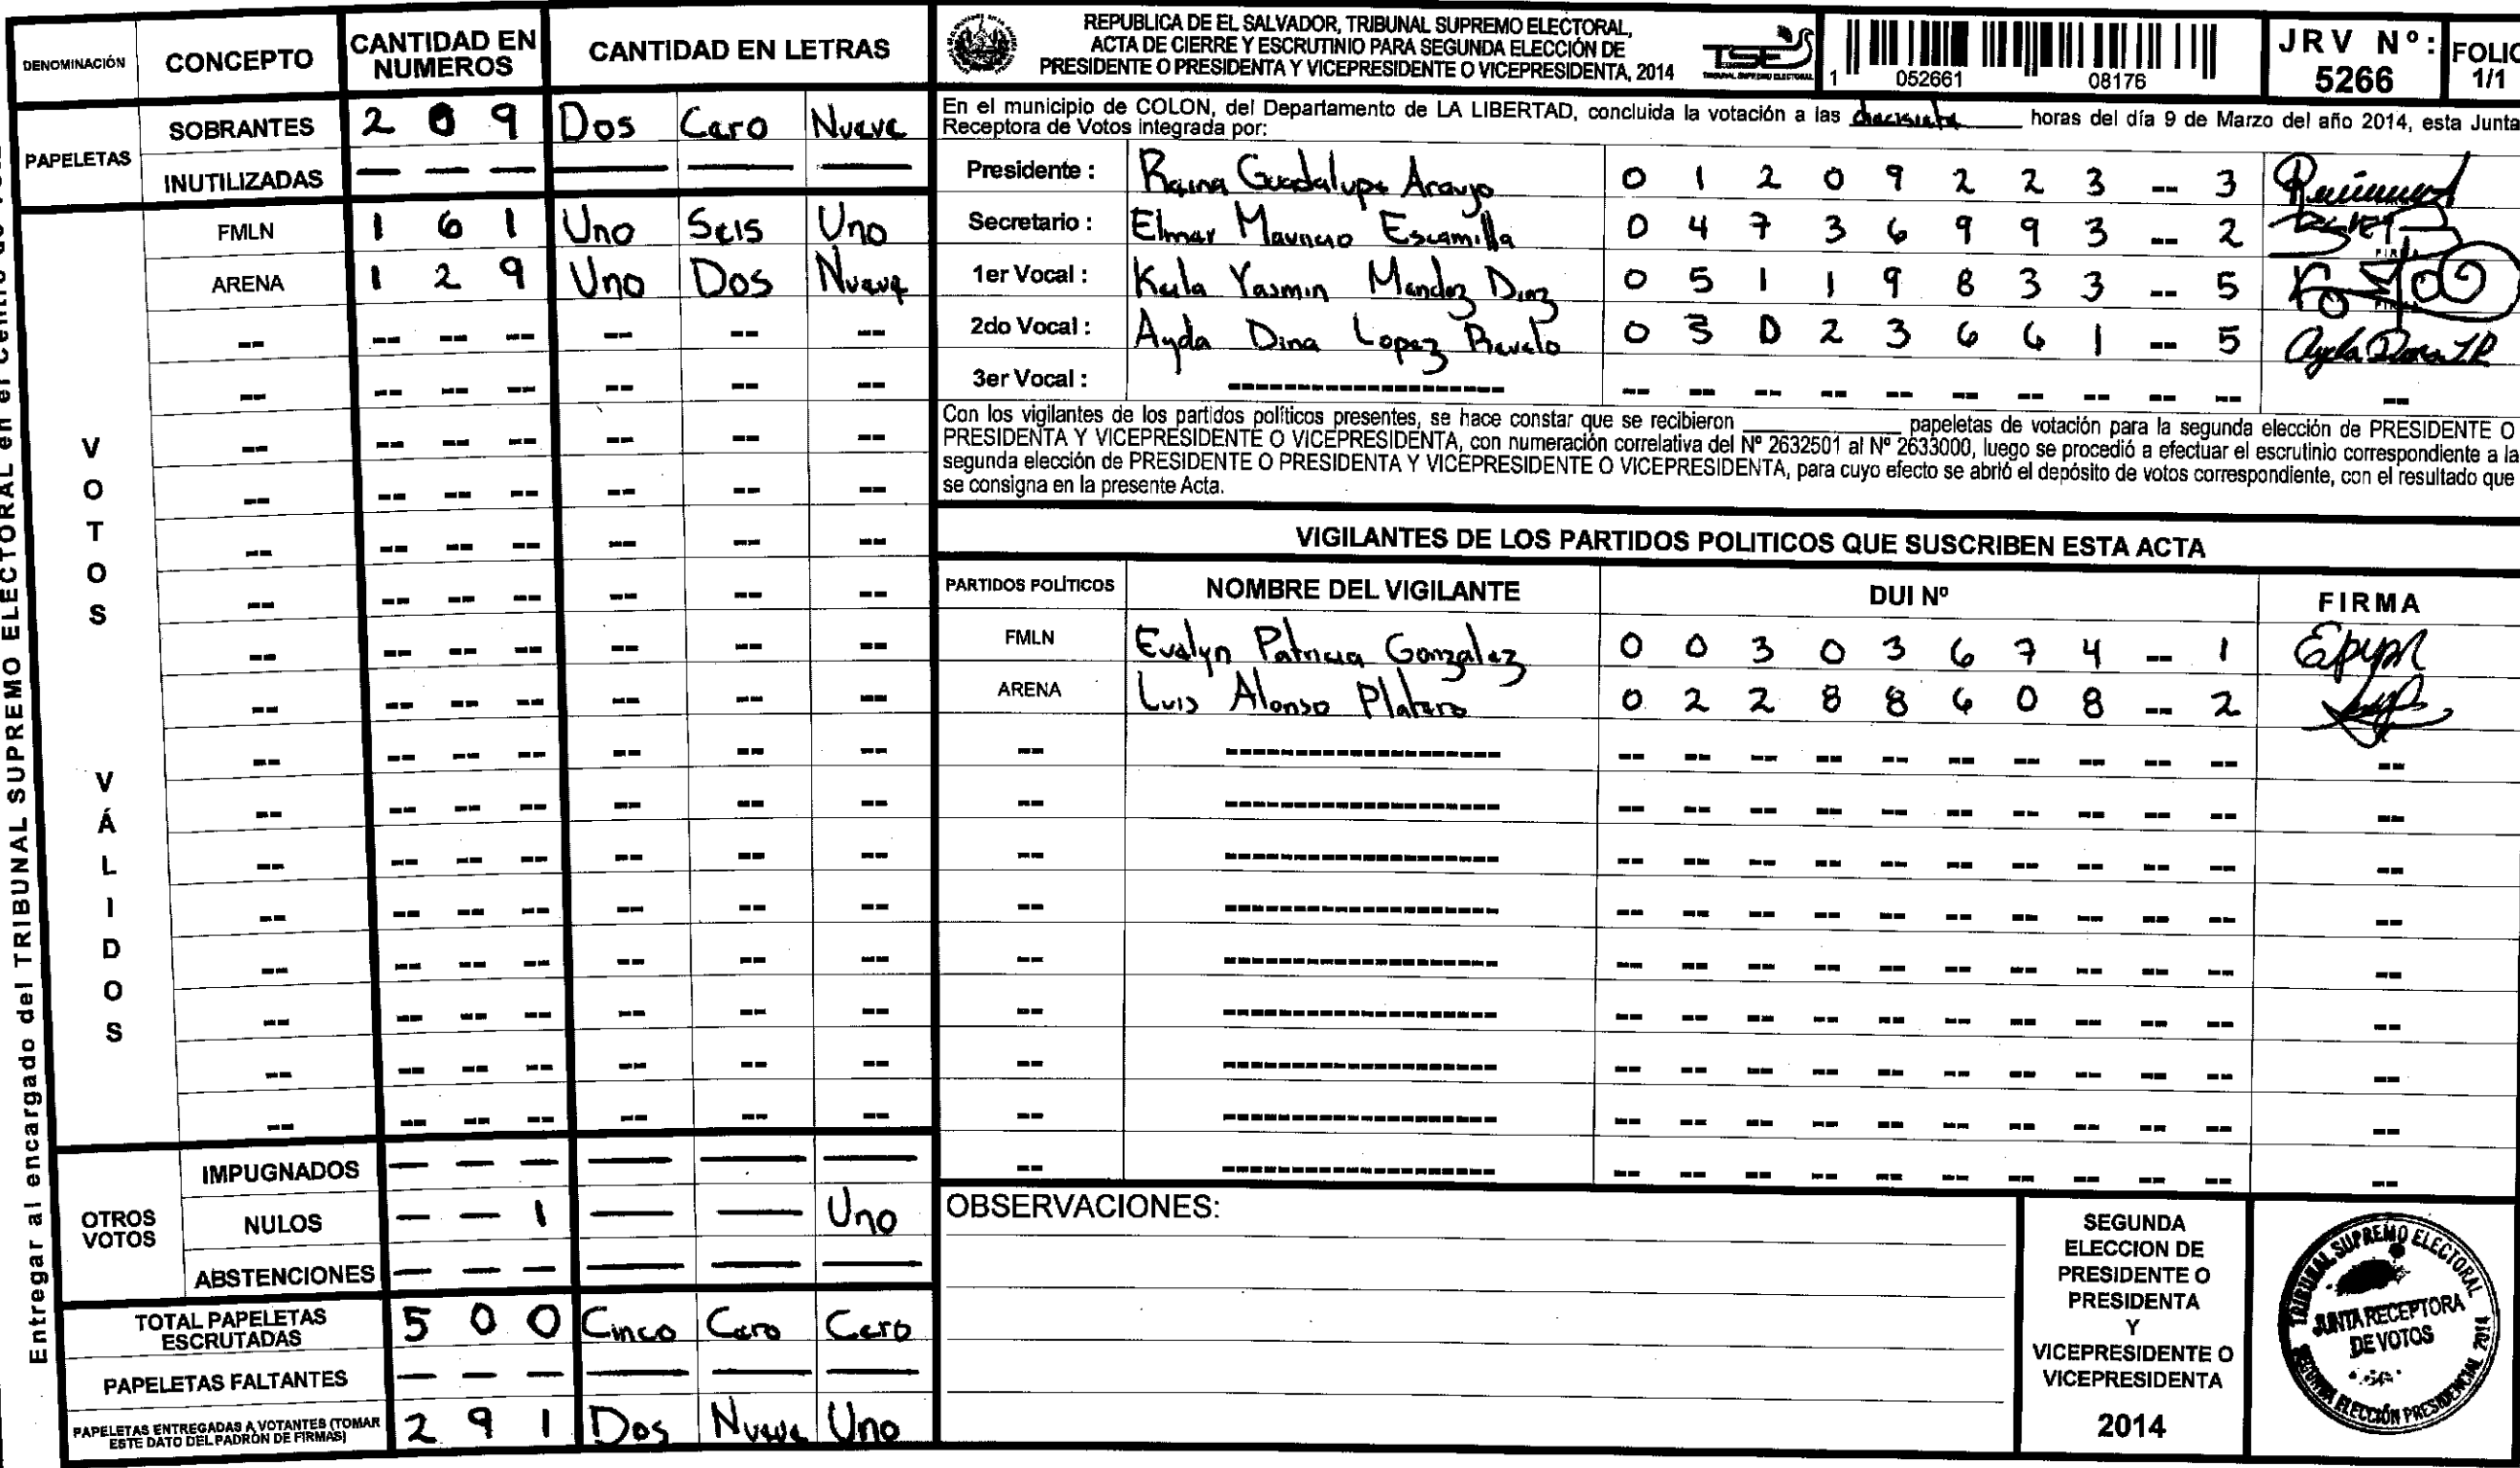 Entregar al encargado del TRIBUNAL SUPREMO ELECTORAL en el
DENOMINACIÓN CONCEPTO CANTIDAD EN NUMEROS CANTIDAD EN LETRAS
PAPELETAS
SOBRANTES 2 0 9 Dos Cero Nueve
INUTILIZADAS — — — — — —
VOTOS VÁLIDOS
FMLN 1 6 1 Uno Seis Uno
ARENA 1 2 9 Uno Dos Nueve
OTROS VOTOS
IMPUGNADOS — — — — — —
NULOS — — 1 — — Uno
ABSTENCIONES — — — — — —
TOTAL PAPELETAS ESCRUTADAS 5 0 0 Cinco Cero Cero
PAPELETAS FALTANTES — — — — — —
PAPELETAS ENTREGADAS A VOTANTES (TOMAR ESTE DATO DEL PADRÓN DE FIRMAS) 2 9 1 Dos Nueve Uno
REPUBLICA DE EL SALVADOR, TRIBUNAL SUPREMO ELECTORAL,
ACTA DE CIERRE Y ESCRUTINIO PARA SEGUNDA ELECCIÓN DE
PRESIDENTE O PRESIDENTA Y VICEPRESIDENTE O VICEPRESIDENTA, 2014
TSE
TRIBUNAL SUPREMO ELECTORAL
1 052661 08176
JRV Nº: 5266
FOLIO 1/1
En el municipio de COLON, del Departamento de LA LIBERTAD, concluida la votación a las horas del día 9 de Marzo del año 2014, esta Junta
Receptora de Votos integrada por:
Presidente : Raina Guadalupe Araujo 0 1 2 0 9 2 2 3 -- 3
Secretario : Elmer Mauricio Escamilla 0 4 7 3 6 9 9 3 -- 2
1er Vocal : Keila Yasmin Mendez Diaz 0 5 1 1 9 8 3 3 -- 5
2do Vocal : Ayda Dina Lopez Revelo 0 3 0 2 3 6 6 1 -- 5
3er Vocal :
Con los vigilantes de los partidos políticos presentes, se hace constar que se recibieron papeletas de votación para la segunda elección de PRESIDENTE O
PRESIDENTA Y VICEPRESIDENTE O VICEPRESIDENTA, con numeración correlativa del Nº 2632501 al Nº 2633000, luego se procedió a efectuar el escrutinio correspondiente a la
segunda elección de PRESIDENTE O PRESIDENTA Y VICEPRESIDENTE O VICEPRESIDENTA, para cuyo efecto se abrió el depósito de votos correspondiente, con el resultado que
se consigna en la presente Acta.
VIGILANTES DE LOS PARTIDOS POLITICOS QUE SUSCRIBEN ESTA ACTA
PARTIDOS POLÍTICOS NOMBRE DEL VIGILANTE DUI Nº FIRMA
FMLN Evelyn Patricia Gonzalez 0 0 3 0 3 6 7 4 -- 1
ARENA Luis Alonso Platero 0 2 2 8 8 6 0 8 -- 2
OBSERVACIONES:
SEGUNDA
ELECCION DE
PRESIDENTE O
PRESIDENTA
Y
VICEPRESIDENTE O
VICEPRESIDENTA
2014
TRIBUNAL SUPREMO ELECTORAL
JUNTA RECEPTORA
DE VOTOS
SEGUNDA ELECCIÓN PRESIDENCIAL 2014